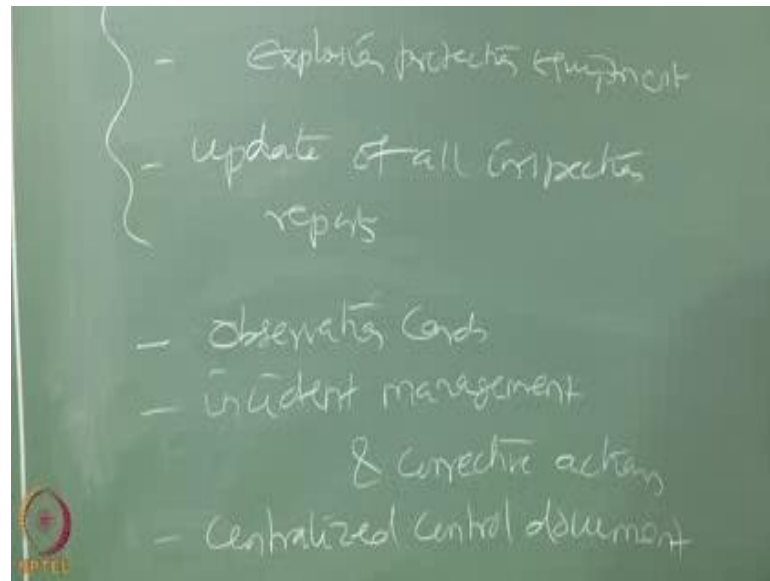 - Explosion protection equipment
- update of all inspection
reports
- Observation Cards
- incident management
& corrective action
- Centralized control document
NPTEL